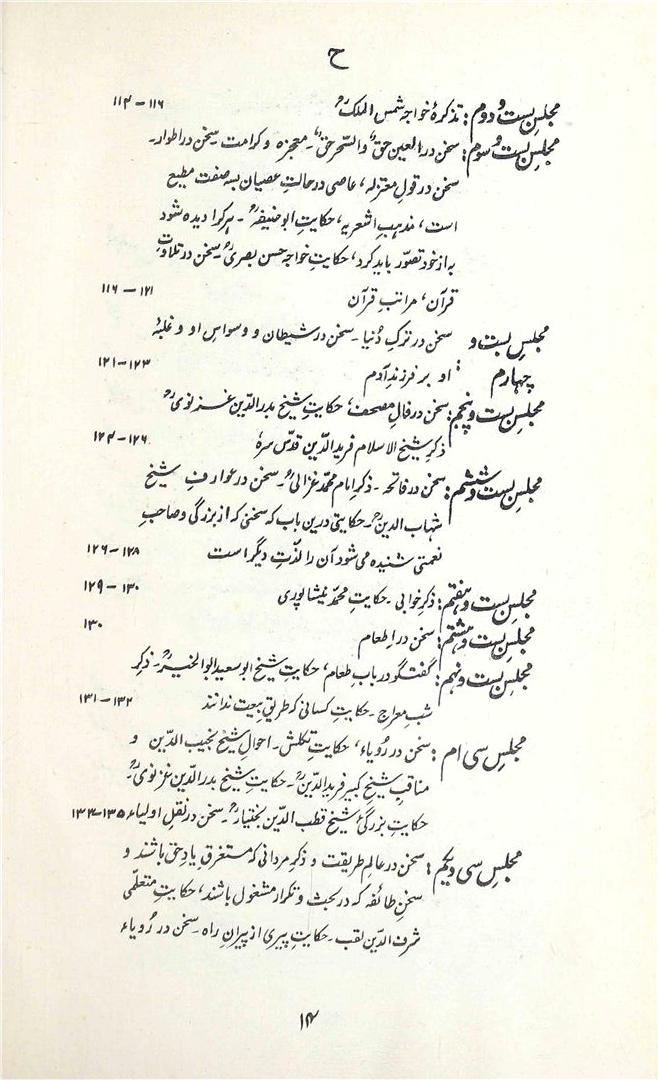 ح
مجلس بست و دوم: تذکرهٔ خواجه شمس الملکؒ ۱۱۶ – ۱۱۴
مجلس بست و سوم: سخن در العین حقٌ والسّحر حقٌ۔ معجزه و کرامت سخن در اطوار۔
سخن در قولِ معتزله، عاصی در حالتِ عصیان بسه صفت مطیع
است، مذهبِ اشعریه، حکایتِ ابو حنیفهؒ۔ هرکرا دیده شود
به از خود تصوّر باید کرد، حکایتِ خواجه حسن بصریؒ۔ سخن در تلاوتِ
قرآن، مراتبِ قرآن ۱۲۱ – ۱۱۶
مجلسِ بست و سخن در ترکِ دُنیا۔ سخن در شیطان و وسواسِ او و غلبهٔ
چهارم : او بر فرزندِ آدم ۱۲۳ – ۱۲۱
مجلسِ بست و پنجم: سخن در فالِ مصحف، حکایتِ شیخ بدرالدّین غزنویؒ
ذکرِ شیخ الاسلام فریدالدّین قدّس سرهٗ ۱۲۶ – ۱۲۴
مجلسِ بست و ششم: سخن در فاتحه۔ ذکرِ امام محمّد غزالیؒ۔ سخن در عوارفِ شیخ
شهاب الدینؒ۔ حکایتی درین باب که سخنی که از بزرگی و صاحبِ
نعمتی شنیده می شود آن را لذّتِ دیگر است ۱۲۸ – ۱۲۶
مجلسِ بست و هفتم: ذکرِ خوابی۔ حکایتِ محمّد نیشاپوری ۱۳۰ – ۱۲۹
مجلسِ بست و هشتم: سخن در اطعام ۱۳۰
مجلسِ بست و نهم: گفتگو در بابِ طعام، حکایتِ شیخ ابو سعید ابو الخیرؒ۔ ذکرِ
شبِ معراج۔ حکایتِ کسانی که طریقِ بیعت ندانند ۱۳۲ – ۱۳۱
مجلسِ سی ام : سخن در رُویاء، حکایتِ تکلش۔ احوالِ شیخ نجیب الدّین و
مناقبِ شیخ کبیر فریدالدّینؒ۔ حکایتِ شیخ بدرالدّین غزنویؒ۔
حکایتِ بزرگیٔ شیخ قطب الدّین بختیارؒ۔ سخن در نقلِ اولیاء ۱۳۵–۱۳۳
مجلسِ سی و یکم : سخن در عالمِ طریقت و ذکرِ مردانی که مستغرقِ یادِ حق باشند و
سخنِ طائفه که در بحث و تکرار مشغول باشند، حکایتِ متعلّمی
شرف الدّین لقب۔ حکایتِ پیری از پیرانِ راه۔ سخن در رُویاء
۱۴